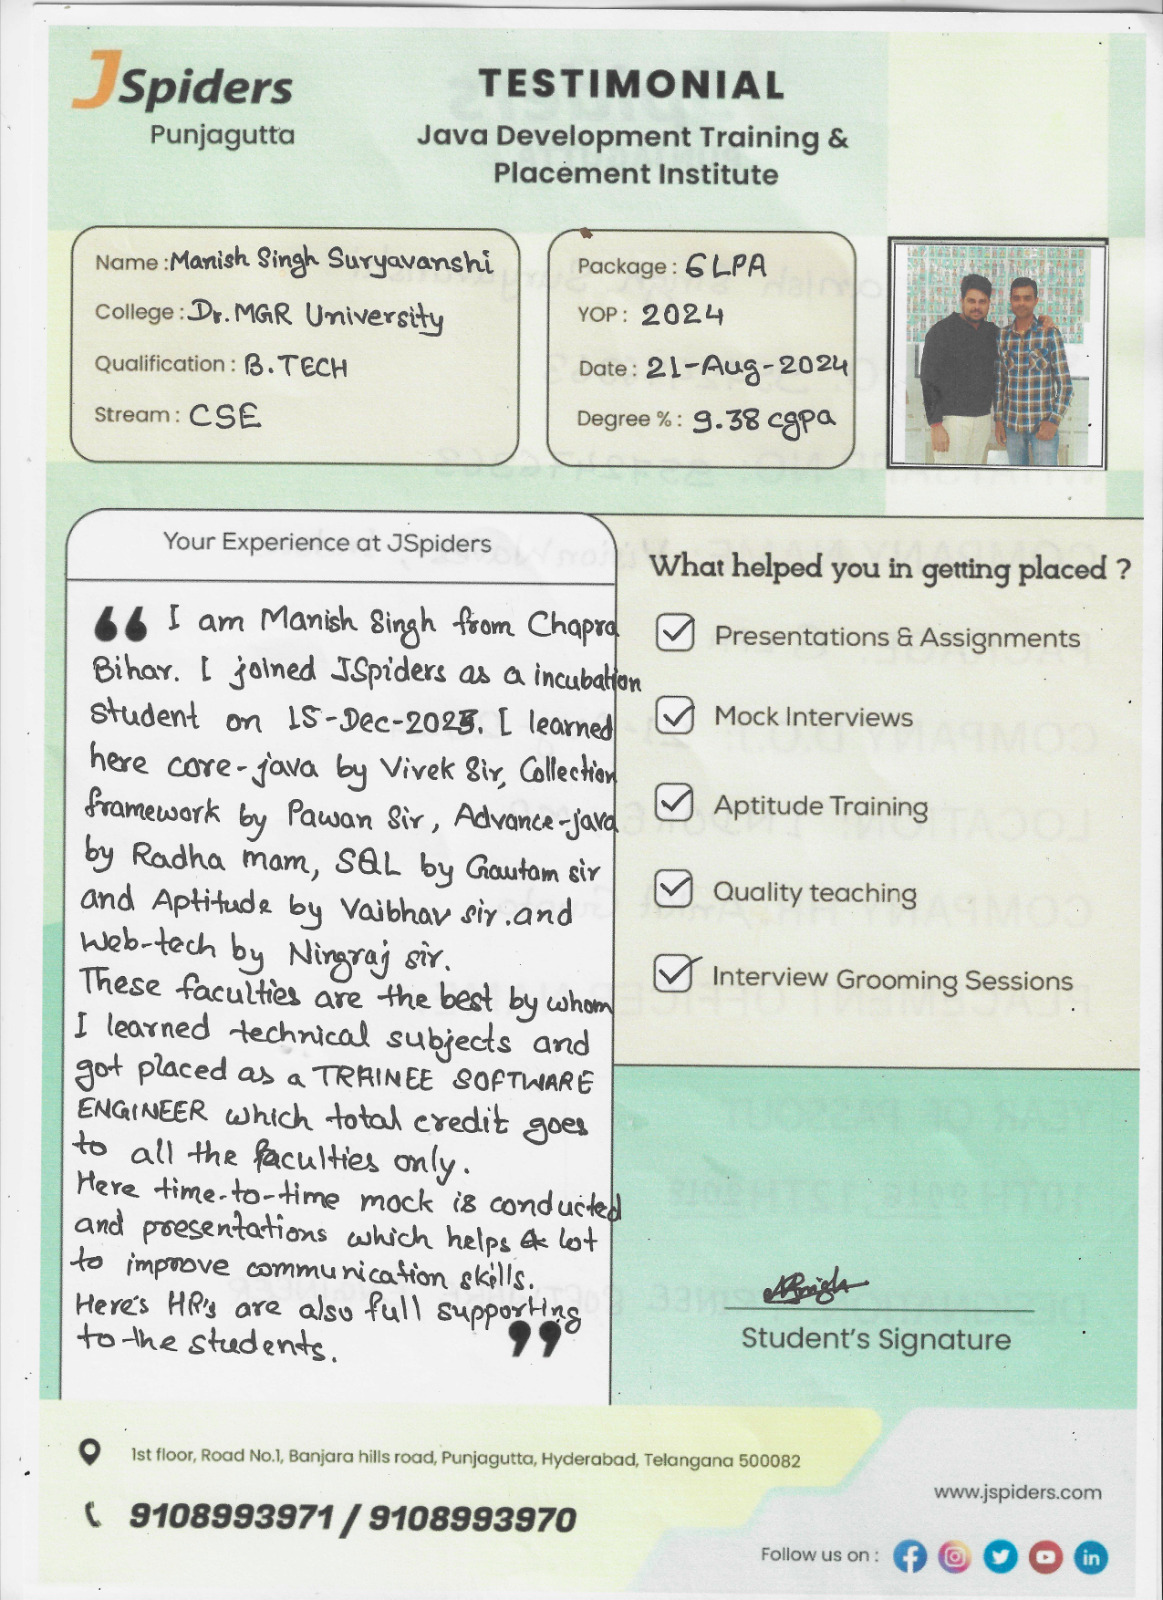 JSpiders
Punjagutta
TESTIMONIAL
Java Development Training &
Placement Institute
Name : Manish Singh Suryavanshi
College : Dr. MGR University
Qualification : B.TECH
Stream : CSE
Package : 6 LPA
YOP : 2024
Date : 21-Aug-2024
Degree % : 9.38 cgpa
Your Experience at JSpiders
“ I am Manish Singh from Chapra
Bihar. I joined JSpiders as a incubation
student on 15-Dec-2023. I learned
here core-java by Vivek Sir, Collection
framework by Pawan Sir, Advance-java
by Radha mam, SQL by Gautam sir
and Aptitude by Vaibhav sir. and
Web-tech by Ningraj sir.
These faculties are the best by whom
I learned technical subjects and
got placed as a TRAINEE SOFTWARE
ENGINEER which total credit goes
to all the faculties only.
Here time-to-time mock is conducted
and presentations which helps a lot
to improve communication skills.
Here's HR's are also full supporting
to the students. ”
What helped you in getting placed ?
Presentations & Assignments
Mock Interviews
Aptitude Training
Quality teaching
Interview Grooming Sessions
Student's Signature
1st floor, Road No.1, Banjara hills road, Punjagutta, Hyderabad, Telangana 500082
9108993971 / 9108993970
www.jspiders.com
Follow us on :